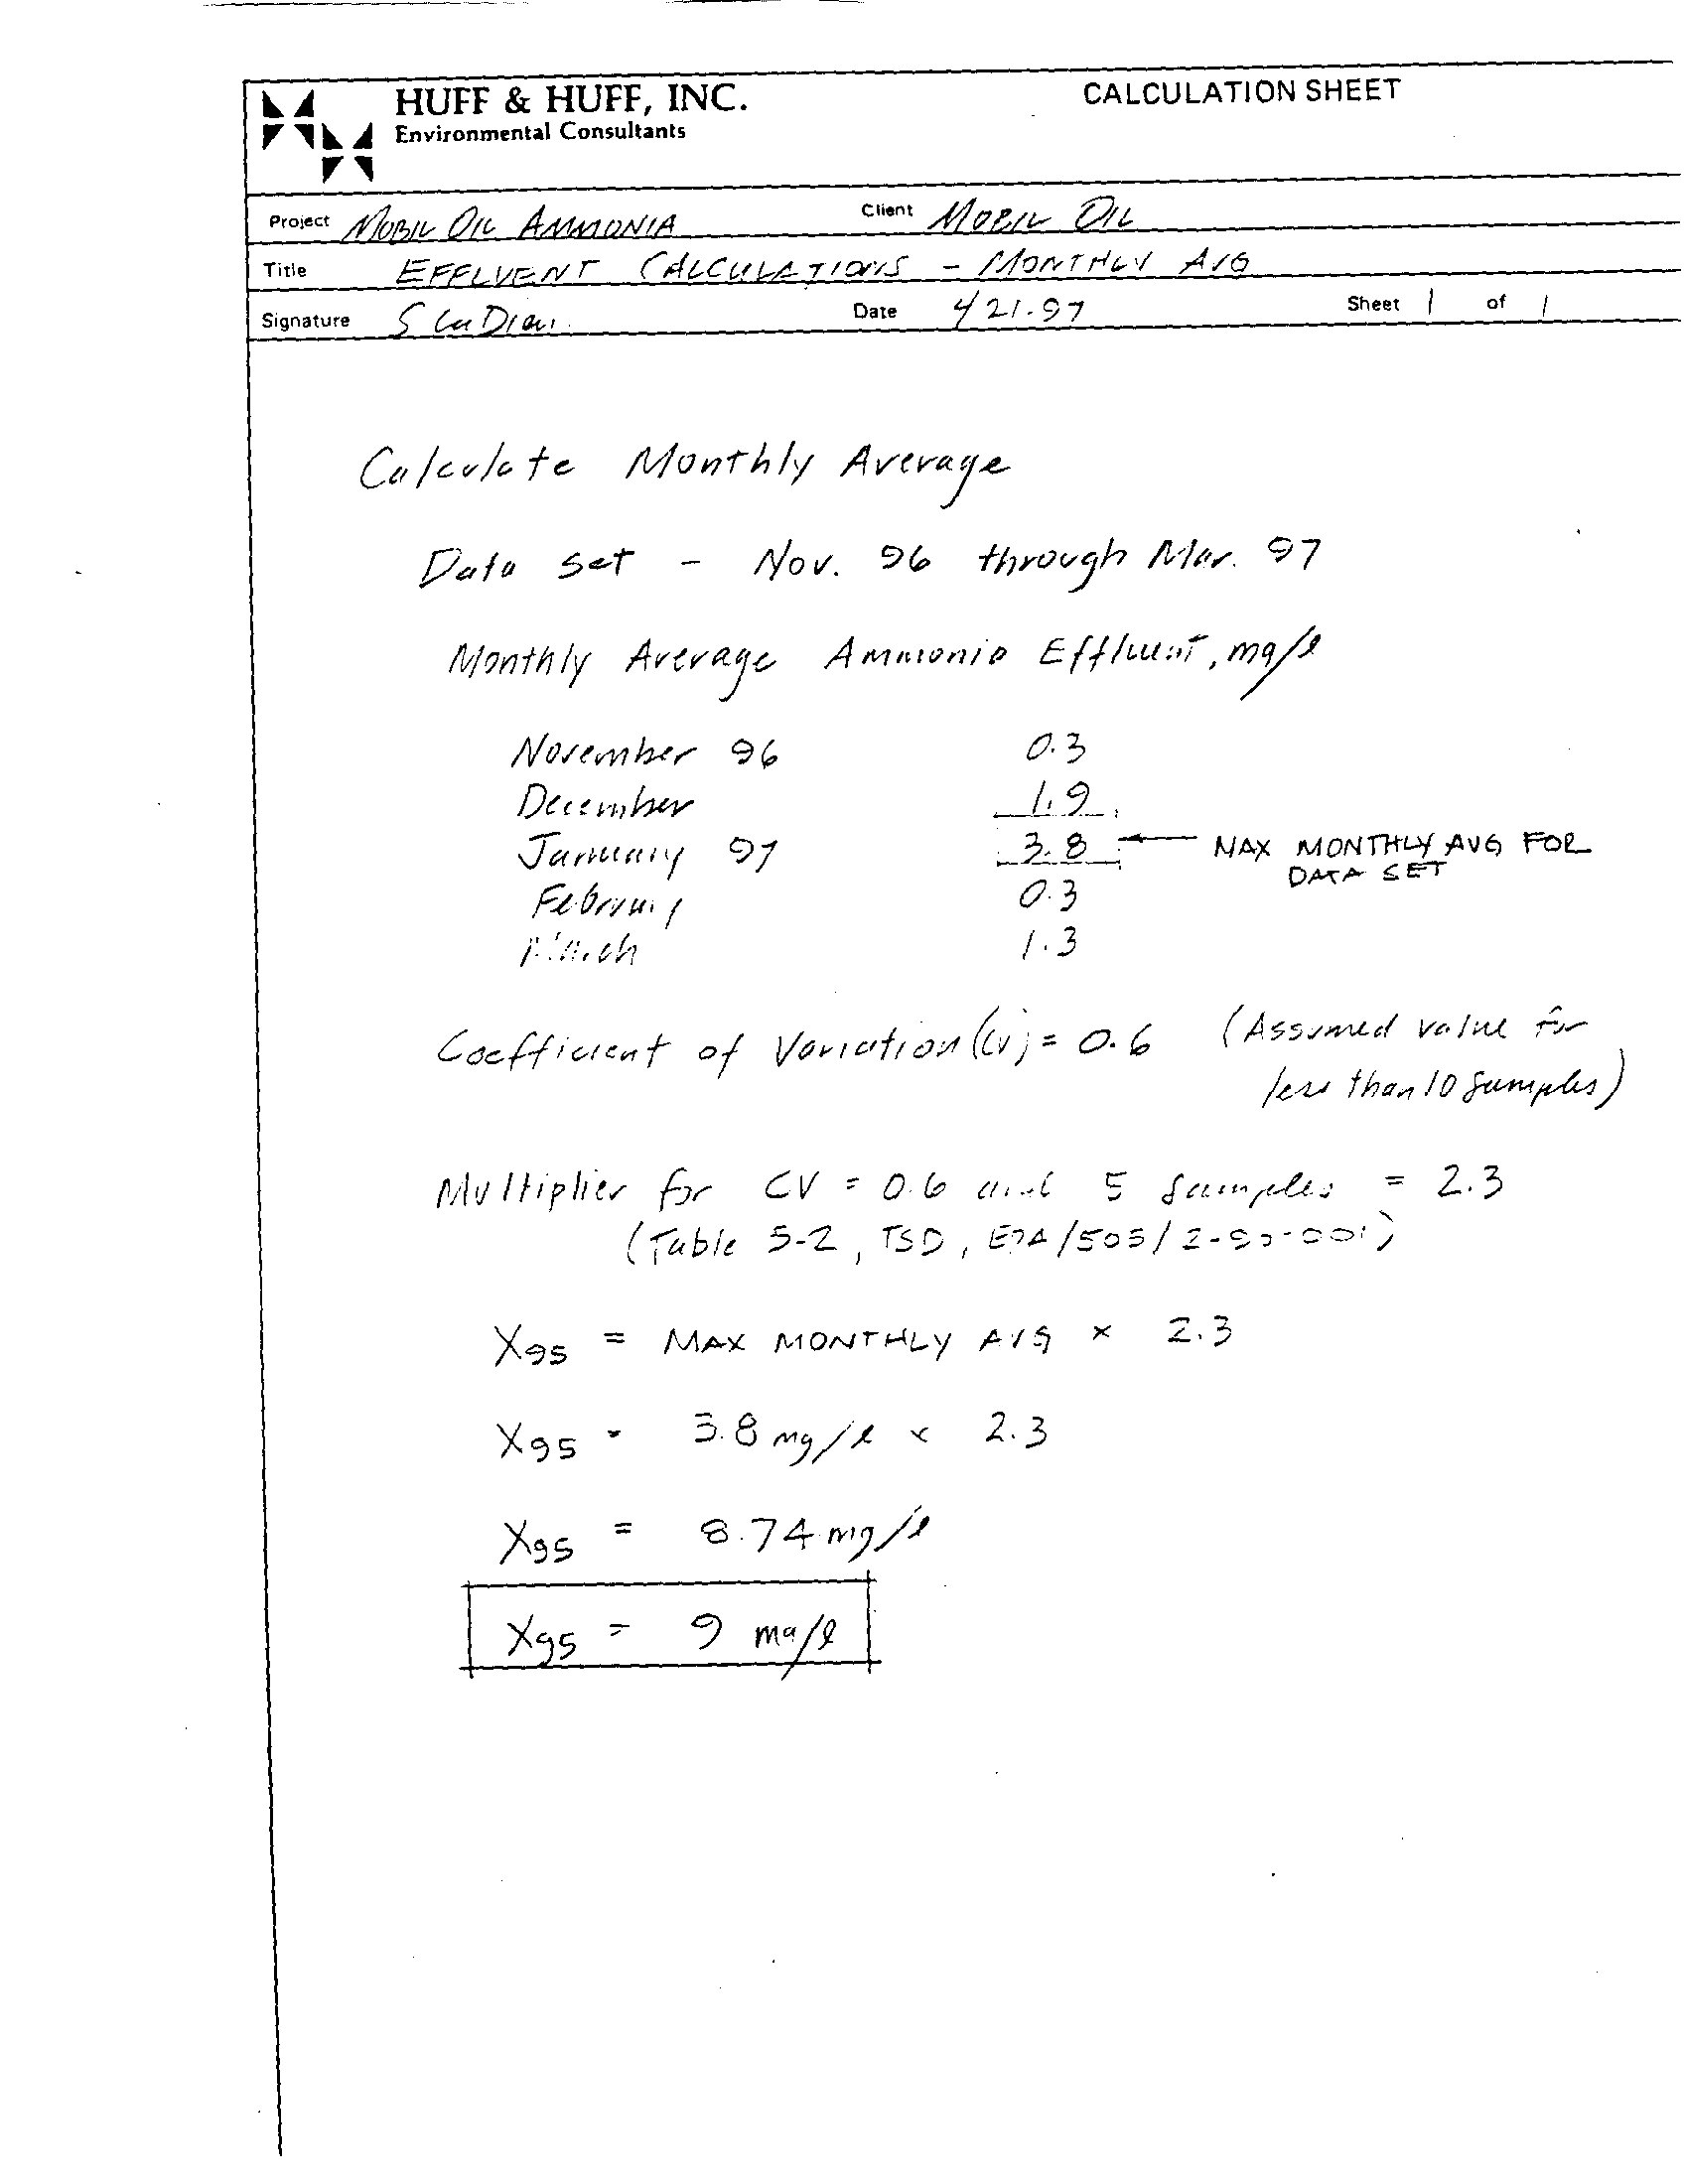 HUFF & HUFF, INC.
Environmental Consultants
CALCULATION SHEET
Project MOBIL OIL AMMONIA Client MOBIL OIL
Title EFFLUENT CALCULATIONS - MONTHLY AVG
Signature Date 4/21.97 Sheet 1 of 1
Calculate Monthly Average
Data Set - Nov. 96 through Mar. 97
Monthly Average Ammonia Effluent, mg/l
November 96 0.3
December 1.9
January 97 3.8 ← MAX MONTHLY AVG FOR
DATA SET
February 0.3
March 1.3
Coefficient of Variation (CV) = 0.6 (Assumed value for
less than 10 samples)
Multiplier for CV = 0.6 and 5 samples = 2.3
(Table 5-2, TSD, EPA/505/2-90-001)
X95 = MAX MONTHLY AVG × 2.3
X95 = 3.8 mg/l × 2.3
X95 = 8.74 mg/l
X95 = 9 mg/l